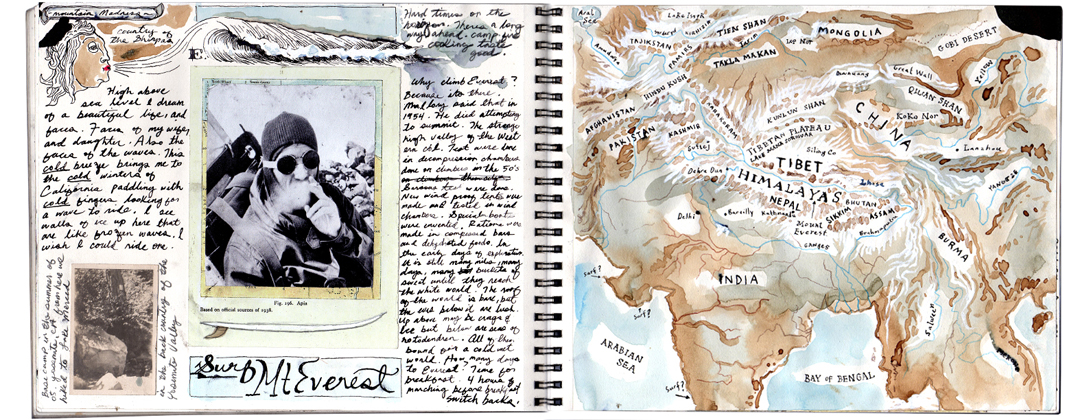 mountain Madness
country
of the Bhispas
High above
sea level I dream
of a beautiful life, and
faces. Faces of my wife,
and daughter. Also the
faces of the waves. This
cold breeze brings me to
the cold winters of
California paddling with
cold fingers looking for
a wave to ride. I see
walls of ice up here that
are like frozen waves. I
wish I could ride one.
Base camp in the summer of
in the back country of the
Yosemite Valley
E
Fig. 196. Apis
Based on official sources of 1938.
Surf
Mt Everest
Hard times on the
There's a long
way ahead. camp fire
cooking taste
good.
Why climb Everest?
Because its there.
Mallory said that in
1954. He died attempting
to summit. The strange
high valley of the West
Test were done
in decompression chambers
done on climbers in the 50's
New wind proof tents were
made and tested in wind
chambers. Special boots
were invented. Rations were
made in compound bars
and dehydrated foods. In
the early days of exploration
It is still many miles, many
days, many buckets of
sweat until they reach
the white world. The roof
of the world is here, but
the world below is lush.
Up above may be crags of
ice but below are seas of
rhododendron. All of them
bound for a cold wet
world. How many days
to Everest? Time for
breakfast. 4 hours of
marching before breakfast
switch backs.
Aral
Sea
Lake Issyk
TIEN SHAN
MONGOLIA
GOBI DESERT
TAJIKISTAN
PAMIRS
Tarim
Lop Nor
TAKLA MAKAN
HINDU KUSH
Great Wall
Yellow
QILIAN SHAN
KOKO NOR
AFGHANISTAN
PAKISTAN
KARAKORAM
KASHMIR
KUNLUN SHAN
CHINA
TIBETAN PLATEAU
Siling Co
Sutlej
TIBET
Dehra Dun
HIMALAYAS
Lhasa
YANGTZE
NEPAL
BHUTAN
SIKKIM
ASSAM
Delhi
Bareilly
Kathmandu
MOUNT
Everest
Brahmaputra
GANGES
BURMA
INDIA
Surf?
Surf?
Surf?
Salween
ARABIAN
SEA
BAY OF BENGAL